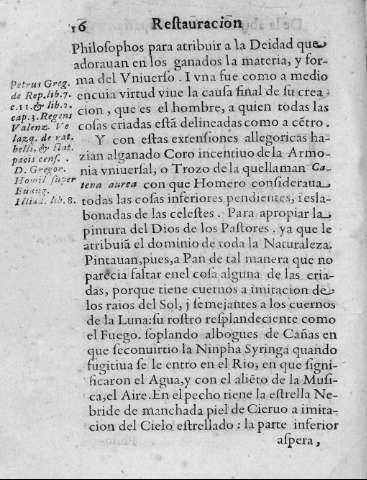 16 Restauracion
Philosophos para atribuir a la Deidad que
adorauan en los ganados la materia, y for-
ma del Vniuerso. I vna fue como a medio
encuia virtud viue la causa final de su crea
cion, que es el hombre, a quien todas las
cosas criadas està delineadas como a cẽtro.
Y con estas extensiones allegoricas ha-
zian alganado Coro incentiuo de la Armo-
nia vniuersal, o Trozo de la quellaman Ca-
tena aurea con que Homero consideraua
todas las cosas inferiores pendientes, i esla-
bonadas de las celestes. Para apropiar la
pintura del Dios de los Pastores. ya que le
atribuiā el dominio de toda la Naturaleza.
Pintauan, pues, a Pan de tal manera que no
parecia faltar enel cosa alguna de las cria-
das, porque tiene cuernos a imitacion de
los raios del Sol, j semejantes a los cuernos
de la Luna: su rostro resplandeciente como
el Fuego. soplando albogues de Cañas en
que seconuirtio la Ninpha Syringa quando
fugitiua se le entro en el Rio, en que signi-
ficaron el Agua, y con el aliẽto de la Musi-
ca, el Aire. En el pecho tiene la estrella Ne-
bride de manchada piel de Cieruo a imita-
cion del Cielo estrellado: la parte inferior
aspera,
Petrus Greg.
de Rep. lib. 7.
c. 11. & lib. 2.
cap. 3. Regens
Valenz. Ve
lazq. de rat.
belli, & stat.
pacis cens.
D. Gregor.
Homil super
Euang.
Iliad. lib. 8.